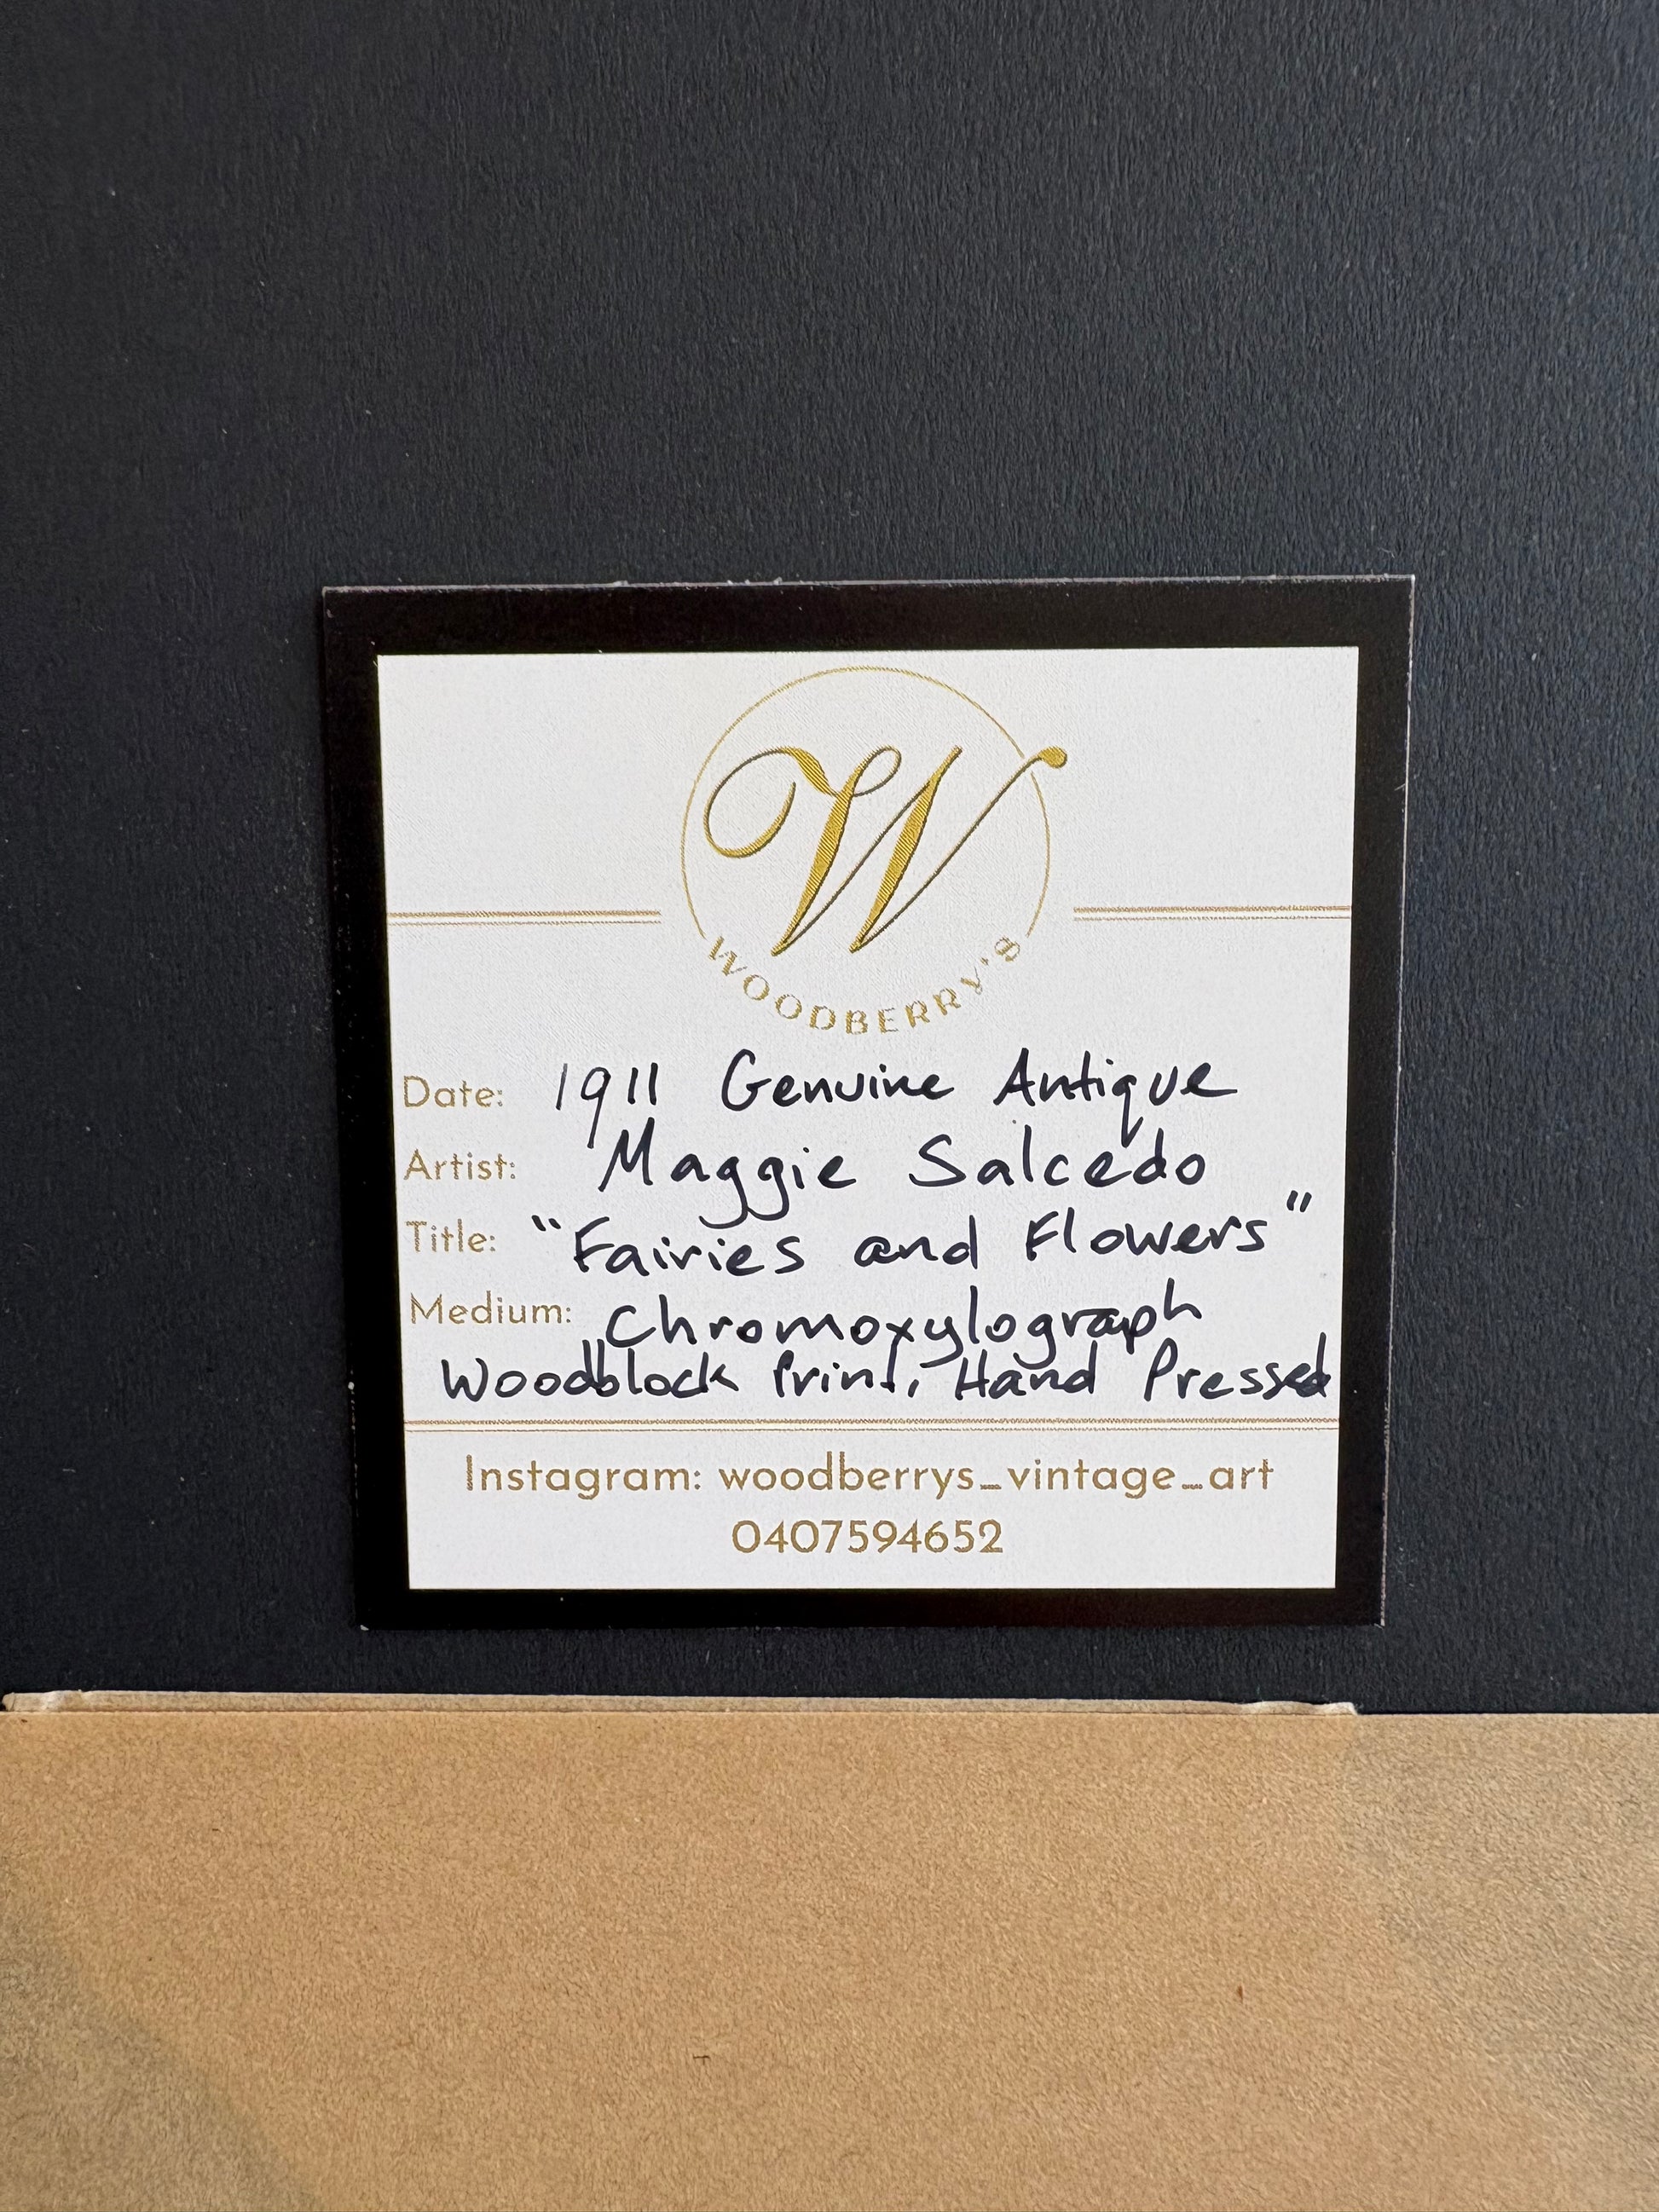 W
WOODBERRY'S
Date: 1911 Genuine Antique
Artist: Maggie Salcedo
Title: "Fairies and Flowers"
Medium: Chromoxylograph
Woodblock Print, Hand Pressed
Instagram: woodberrys_vintage_art
0407594652